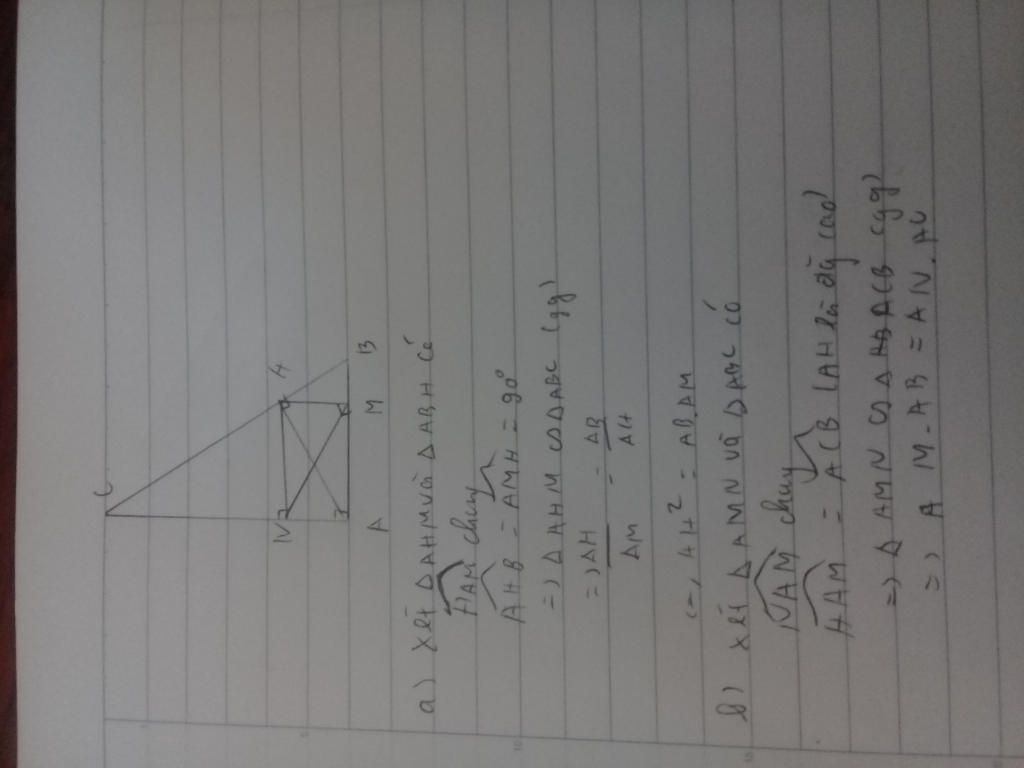 C
N
H
A
M
B
a) Xét ΔAHM và ΔABH có
HAM chung
AHB = AMH = 90°
=) ΔAHM ∽ ΔABC (gg)
=) AH/AM = AB/AH
(=) AH² = AB.AM
b) Xét ΔAMN và ΔABC có
NAM chung
HAM = ACB (AH là đg cao)
=) ΔAMN ∽ ΔACB (gg)
=) AM.AB = AN.AC